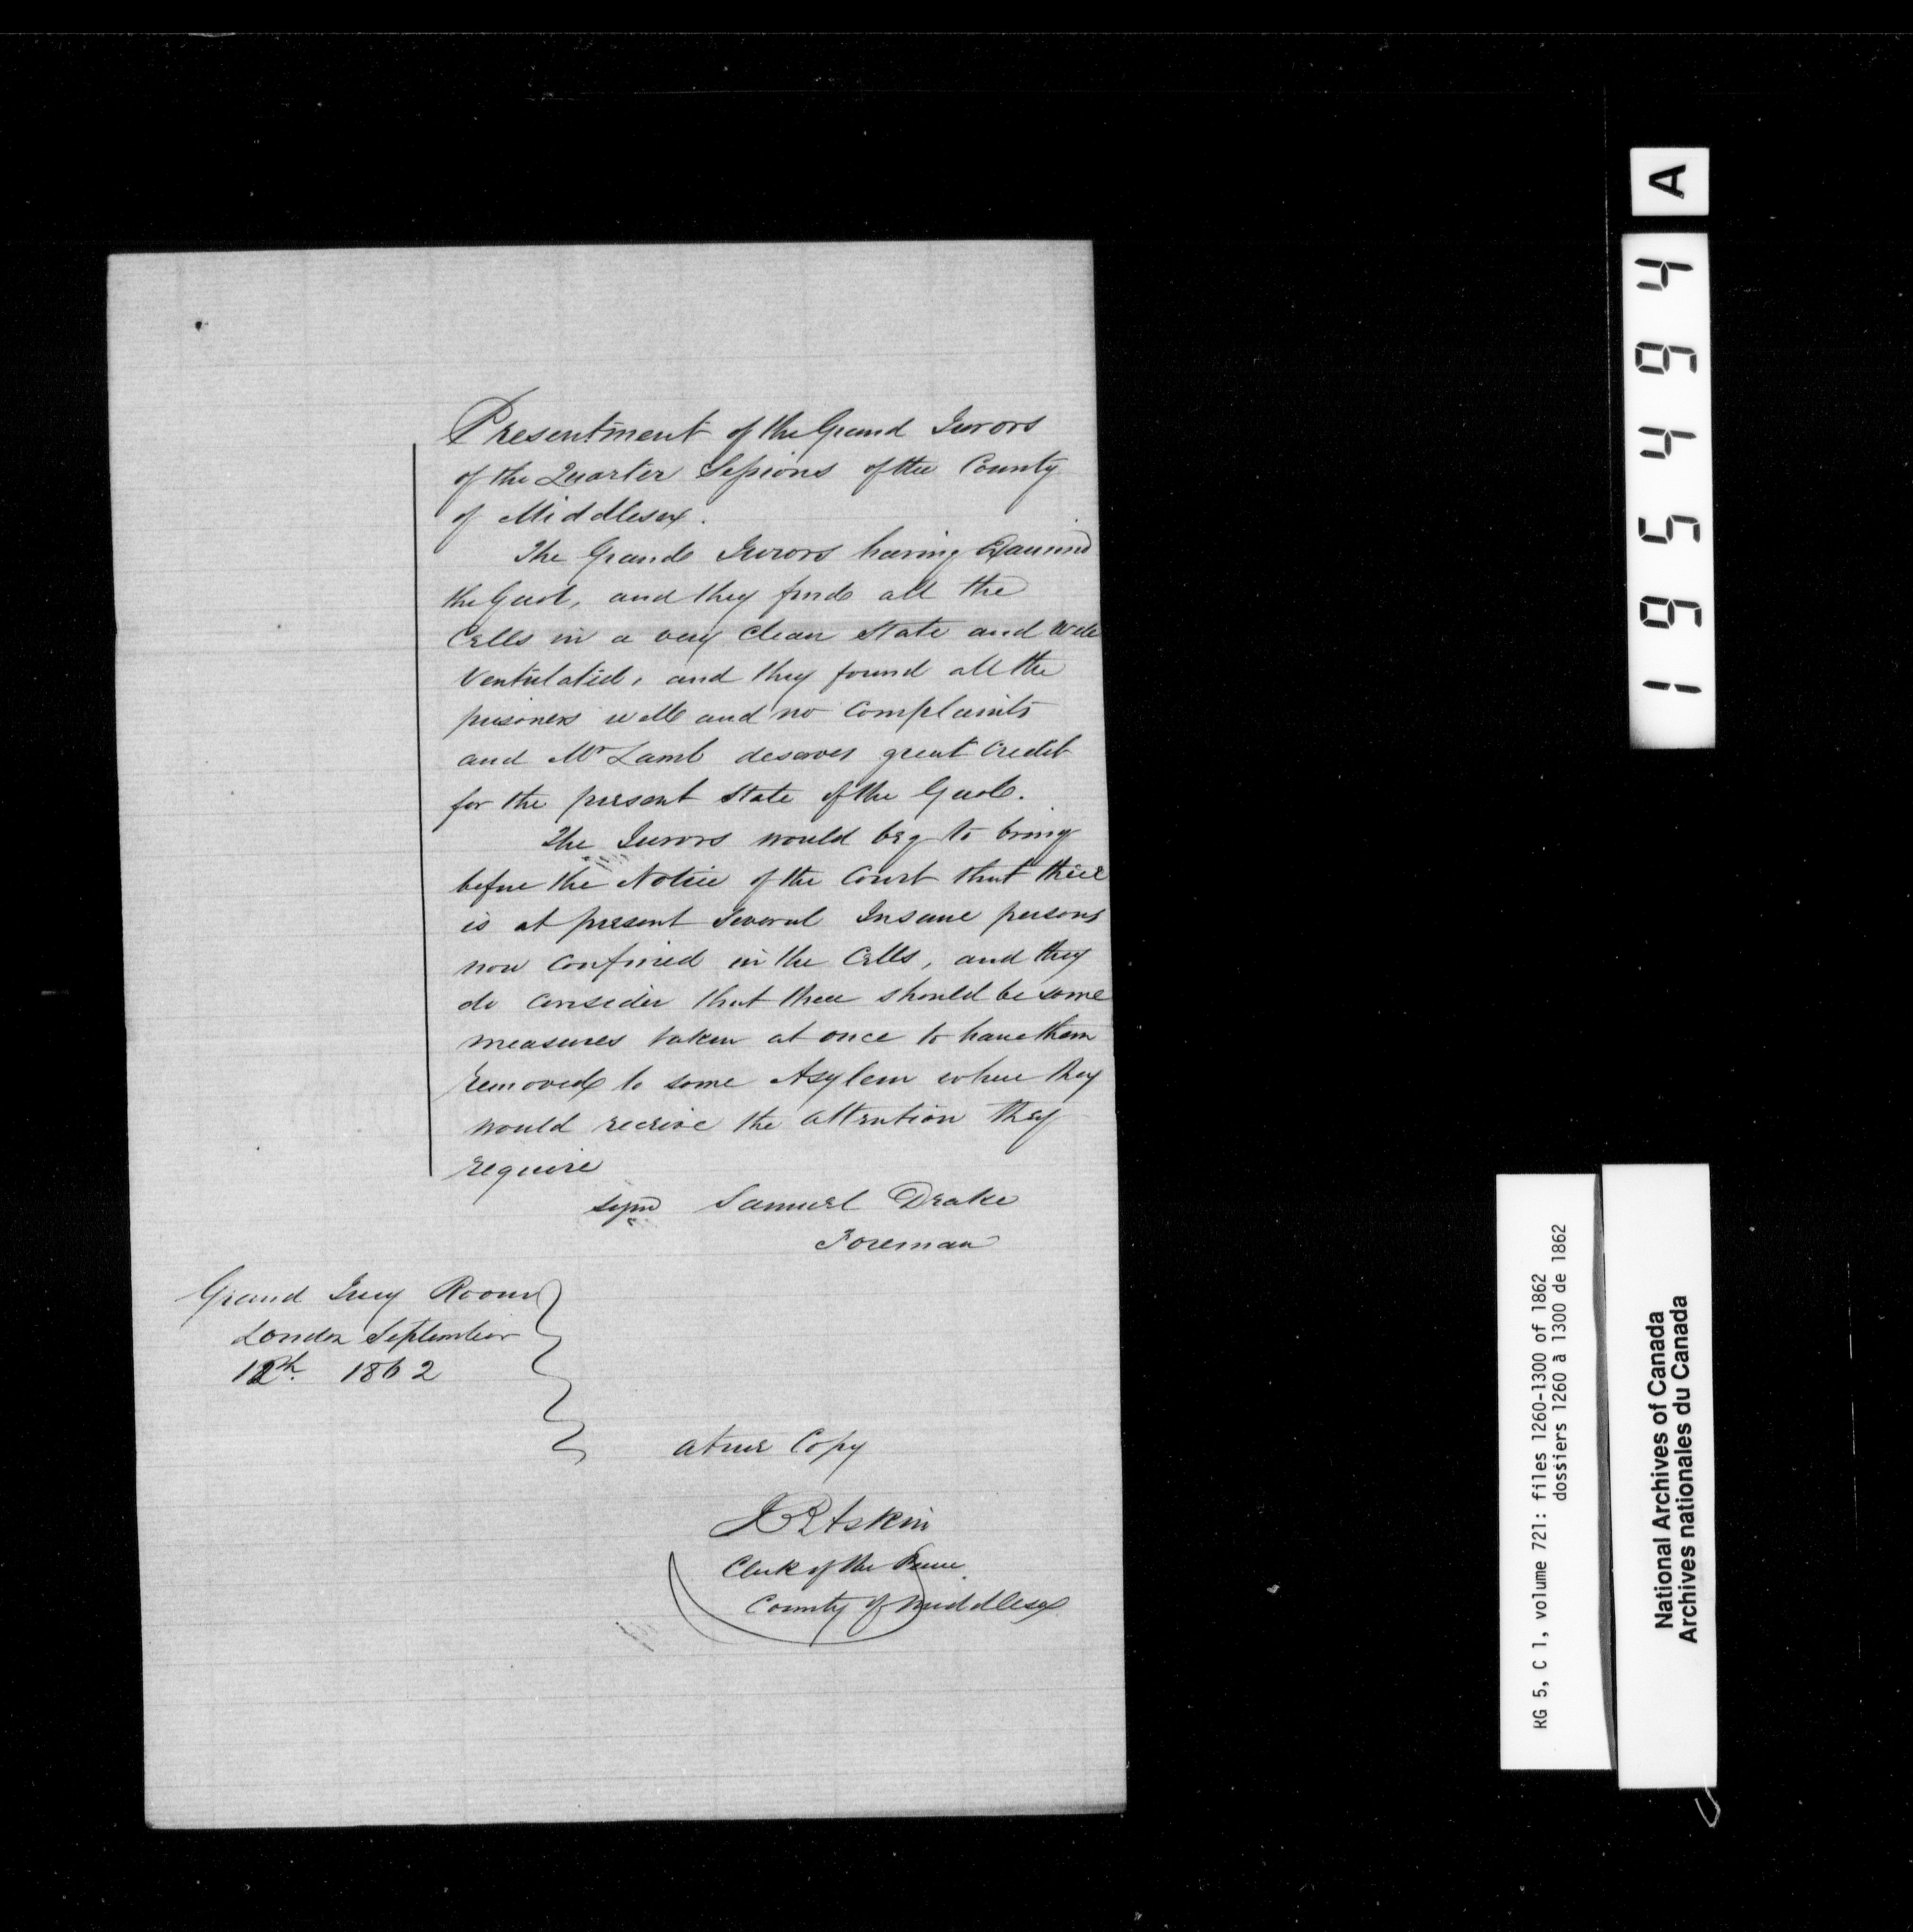 Presentment of the Grand Jurors
of the Quarter Sessions of the County
of Middlesex.
The Grand Jurors having Examind
the Gaol, and they find all the
Cells in a very clean state and well
Ventilated, and they found all the
prisoners well and no Complaints
and Mr Lamb deserves great Credit
for the present state of the Gaol.
The Jurors would beg to bring
before the Notice of the Court that there
is at present several Insane persons
now confined in the Cells, and they
do consider that there should be some
measures taken at once to have them
removed to some Asylem where they
would receive the attention they
require
Signd Samuel Drake
Foreman
Grand Jury Room
London September
12th. 1862
a true Copy
J B Askin
Clerk of the Peace
County of Middlesex
195494 A
RG 5, C 1, volume 721: files 1260-1300 of 1862
dossiers 1260 à 1300 de 1862
National Archives of Canada
Archives nationales du Canada